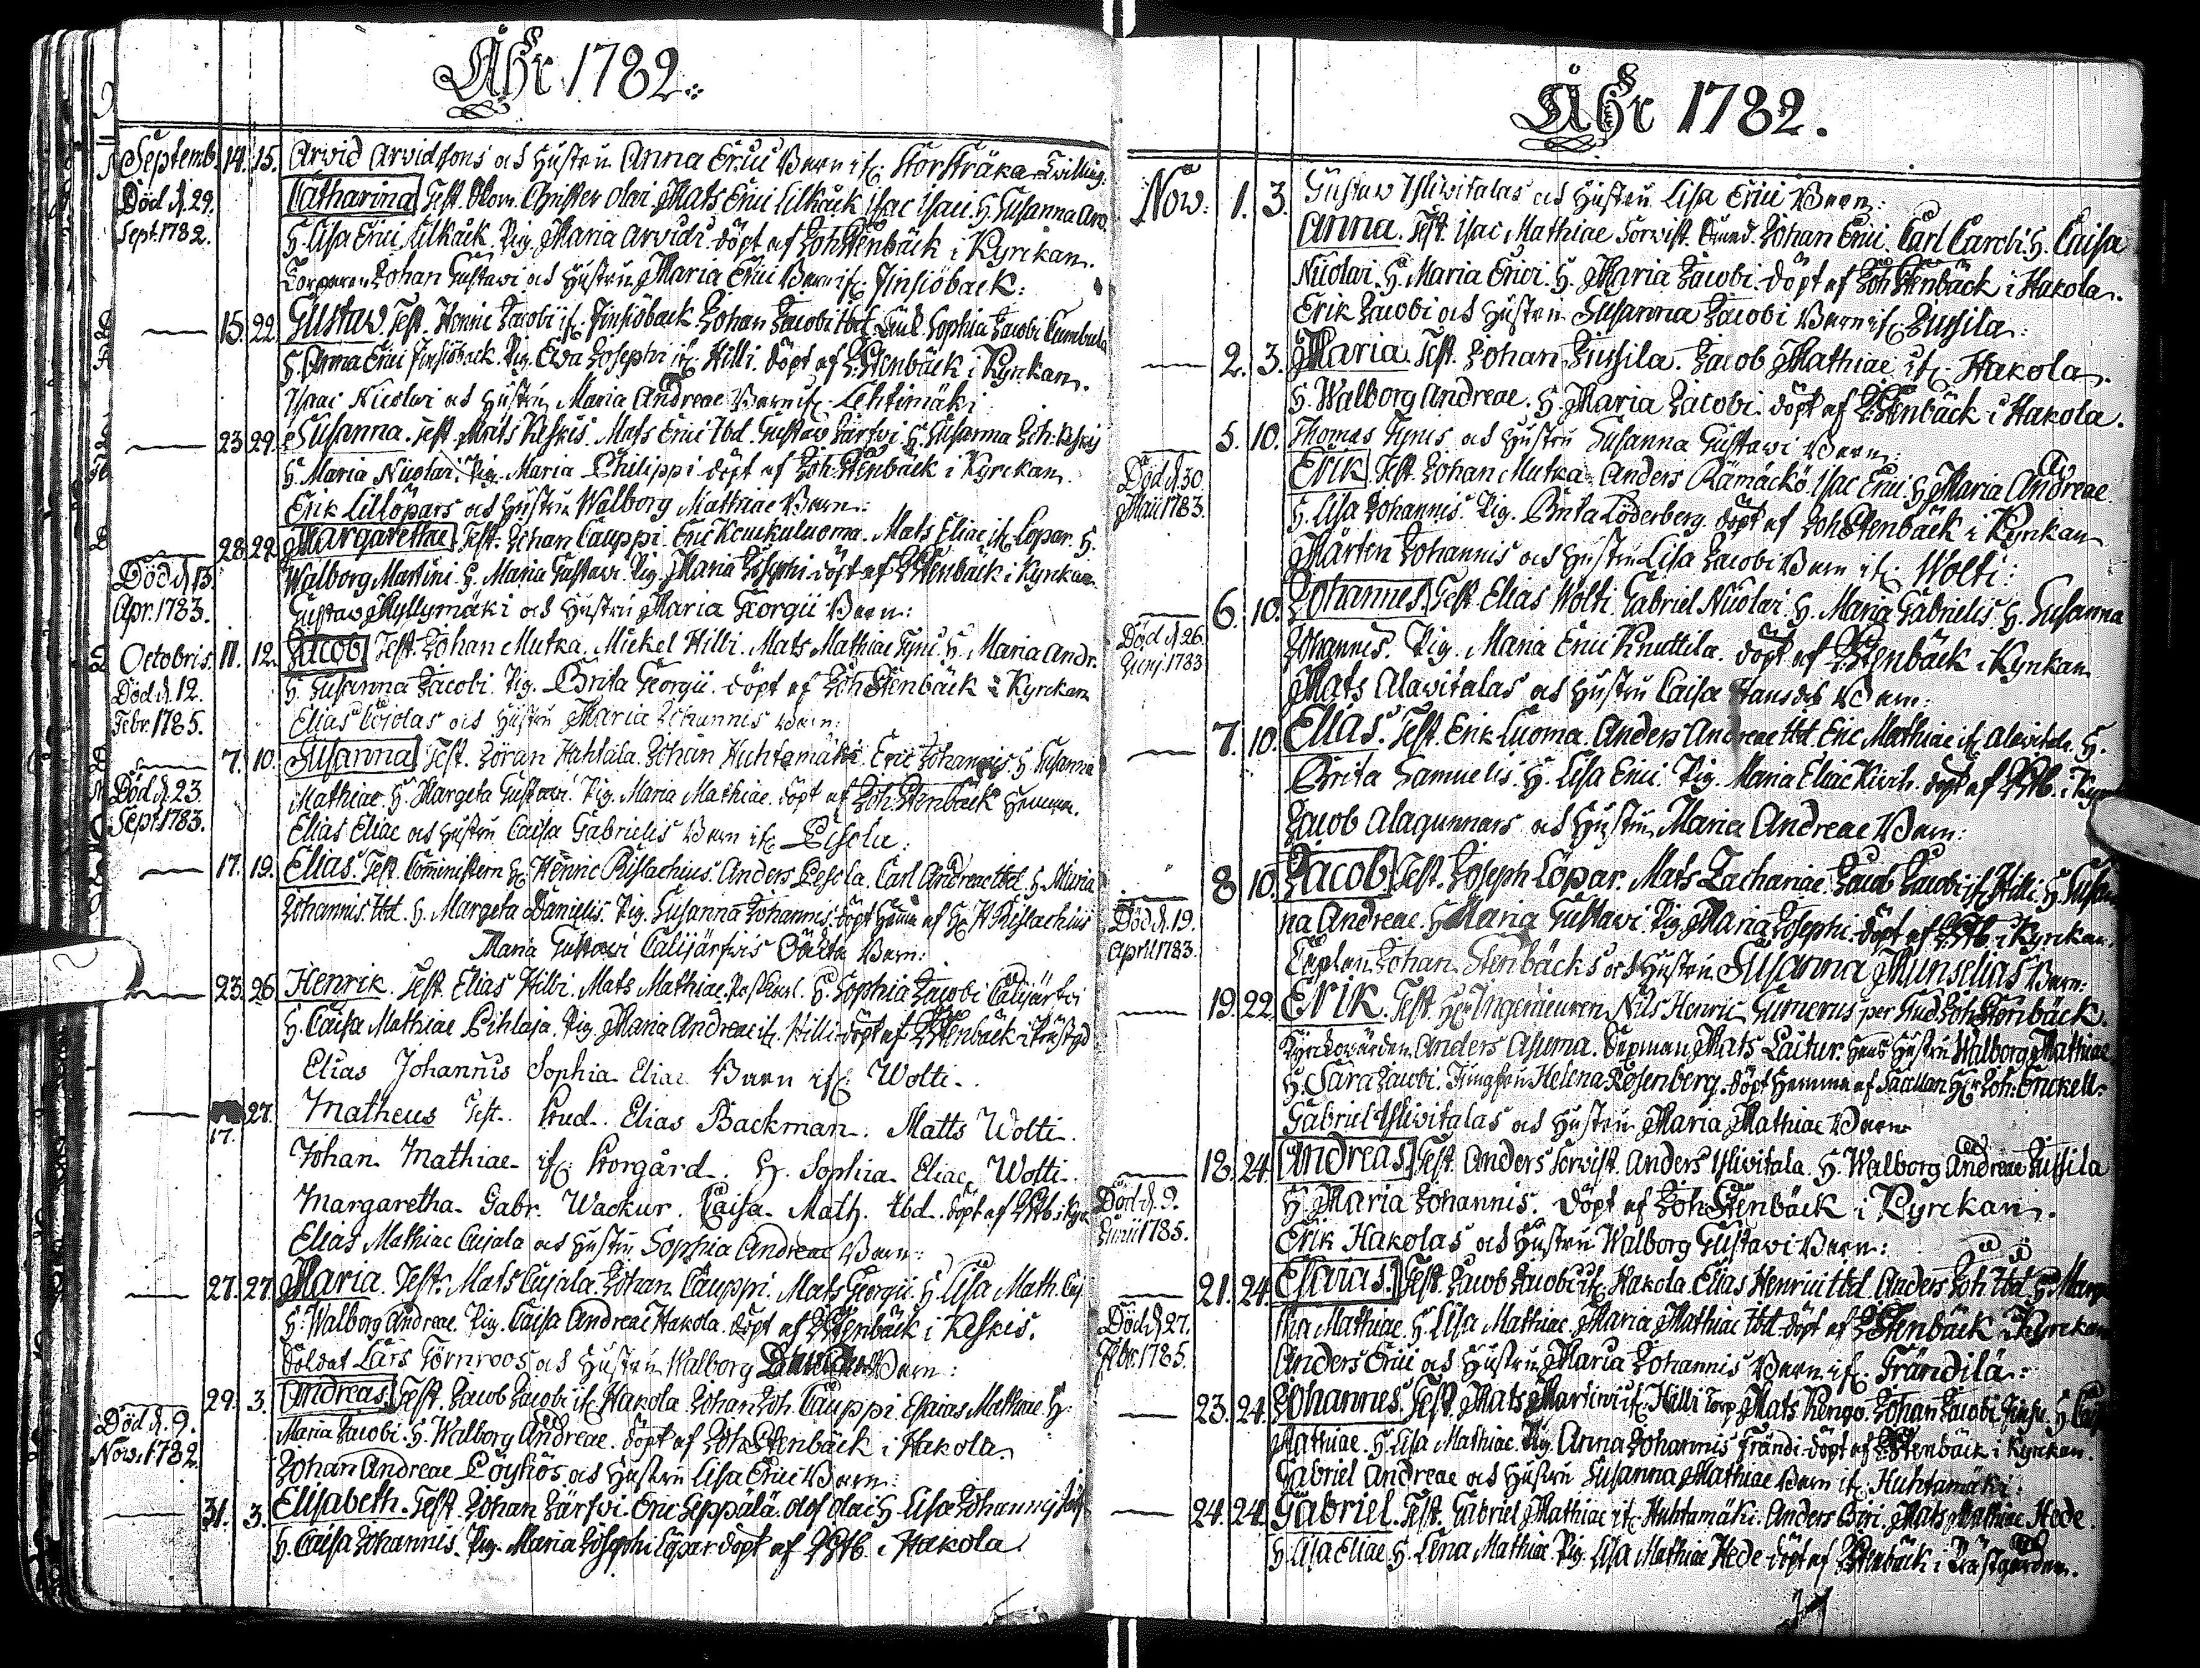 Åhr 1782.
Septemb. 14. 15. Arvid Arvidsons och Hustru Anna Erici Barn if: Storsträka Tvilling.
Död d. 29. Sept. 1782.
Catharina Test. Christer Olai. Mats Erici Lillkåck Isac Isaci. H. Susanna Arv.
H. Lisa Erici Lillkåck. Pig. Maria Arvidi. döpt af Joh Stenbäck i Kyrckan.
Torparen Johan Gustavi och Hustru Maria Erici Barn if: Jinsiöback:
15. 22. Gustav Test. Henric Jacobi if: Jinsiöback Johan Jacobi Ibd. Sophia Jacobi
H. Anna Erici Jinsiöback. Pig. Eva Josephi if: Hilli. döpt af J: Stenbäck i Kyrkan.
Isaac Nicolai och Hustru Maria Andreae Barn if: Lehtimäki
23. 29. Susanna. Test. Mats Keskis. Mats Erici Ibd. Gustav Järfvi H. Susanna Joh. Keskis
H. Maria Nicolai. Pig. Maria Philippi döpt af Joh: Stenbäck i Kyrckan.
Erik Lillöpars och Hustru Walborg Mathiae Barn:
28. 29. Margaretha Test. Johan Cauppi. Eric Keukuluoma. Mats Eliae if: Lopar. H.
Död d. 13. Apr. 1783.
Walborg Martini. H. Maria Gustavi. Pig. Maria Josephi döpt af J Stenbäck i Kyrkan.
Gustav Myllymäki och Hustru Maria Georgii Barn:
Octobris. 11. 12. Jacob Test. Johan Mutka. Mickel Hilli. Mats Mathiae H. Maria Andr.
Död d. 12. Febr. 1785.
H. Susanna Jacobi. Pig. Brita Georgii. döpt af Joh Stenbäck i Kyrckan
Elias och Hustru Maria Johannis Barn:
7. 10. Susanna Test. Johan Huhtamäki. Eric Johannis H. Susanna
Död d. 23. Sept. 1783.
Mathiae. H. Margeta Gustavi. Pig. Maria Mathiae. döpt af Joh: Stenbäck Hemma.
Elias Eliae och Hustru Caisa Gabrielis Barn if: Pesola:
17. 19. Elias. Test. Comministern Hr. Henric Anders Pesola. Carl Andreae Ibd. H. Maria
Johannis Ibd. H. Margeta Danielis. Pig. Susanna Johannis. döpt Hemma af Hr H.
Maria Gustavi Calijärfvis Oäckta Barn:
23. 26. Henrik. Test. Elias Hilli. Mats Mathiae H. Sophia Jacobi Calijärfvi
H. Caisa Mathiae Pihlaja. Pig. Maria Andreae if: Hilli döpt af J Stenbäck i Prästgd
Elias Johannis Sophia Eliae Barn if: Wolti.
17. 27. Matheus Test. Stud. Elias Backman. Matts Wolti.
Johan Mathiae if: Storgård. H. Sophia Eliae Wolti.
Margaretha Gabr. Wackur. Caisa Math. Ibd. döpt af J Stb: i Kyrk
Elias Mathiae och Hustru Sophia Andreae Barn:
27. 27. Maria. Test. Mats Johan Cauppi. Mats Georgii. H. Lisa Math.
H. Walborg Andreae. Pig. Caisa Andreae Hakola. döpt af J Stenbäck i Keskis.
Soldat Lars Törnroos och Hustru Walborg Barn:
29. 3. Andreas Test. Jacob Jacobi if: Hakola. Johan Joh. Cauppi. Esaias Mathiae. H.
Död d. 9. Nov. 1782.
Maria Jacobi. H. Walborg Andreae. döpt af Joh: Stenbäck i Hakola.
Johan Andreae Löyhös och Hustru Lisa Erici Barn:
31. 3. Elisabeth. Test. Johan Järfvi. Eric Seppälä. Olof Olai H. Lisa Johannis
H. Caisa Johannis. Pig. Maria Josephi Löpar döpt af J Stb. i Hakola
Åhr 1782.
Nov: 1. 3. Gustav Ylivitalas och Hustru Lisa Erici Barn:
Anna. Test. Isac Mathiae Sorvist. Johan Erici. Carl Caroli. H. Caisa
Nicolai. H. Maria Erici. H. Maria Jacobi. döpt af Joh: Stenbäck i Hakola.
Erik Jacobi och Hustru Susanna Jacobi Barn if: Jussila:
2. 3. Maria. Test. Johan Jussila. Jacob Mathiae if: Hakola.
H. Walborg Andreae. H. Maria Jacobi. döpt af J: Stenbäck i Hakola.
5. 10. Thomas och Hustru Susanna Gustavi Barn:
Död d. 30. Maii 1783.
Erik Test. Johan Mutka. Anders Rämäckö. Isac Erici H. Maria Andreae
H. Lisa Johannis. Pig. Brita Löderberg. döpt af Joh Stenbäck i Kyrkan
Mårten Johannis och Hustru Lisa Jacobi Barn if: Wolti:
6. 10. Johannes. Test Elias Wolti. Gabriel Nicolai. H. Maria Gabrielis. H. Susanna
Död d. 26. Junj. 1783
Johannis. Pig. Maria Erici Knuttila. döpt af J: Stenbäck i Kyrkan
Mats Alavitalas och Hustru Caisa Hansdr Barn:
7. 10. Elias. Test. Erik Luoma. Anders Andreae Ibd. Eric Mathiae if: Alavitala. H.
Brita Samuelis. H. Lisa Erici. Pig. Maria Eliae döpt af J Stb. i Kyrk
Jacob Alagunnars och Hustru Maria Andreae Barn:
8. 10. Jacob Test. Joseph Löpar. Mats Zachariae. Jacob Jacobi if: Hilli. H. Susan
Död d. 19. April 1783.
na Andreae. H Maria Gustavi. Pig. Maria Josephi. döpt af J Stb. i Kyrckan.
Caplan Johan Stenbäcks och Hustru Susanna Munselias Barn:
19. 22. Erik. Test. Hr Ingenieuren Nils Henric per Stud Joh Stenbäck.
Kyrckovärden Anders Asuma. Sexman Mats Laitur. Hans Hustru Walborg Mathiae
H. Sara Jacobi. Jungfru Helena Rosenberg. döpt Hemma af Sacellan Hr Joh: Enckell.
Gabriel Ylivitalas och Hustru Maria Mathiae Barn
18. 24. Andreas. Test. Anders Sorvist. Anders Ylivitala. H. Walborg Andreae Jussila
Död d. 9. Junii 1785.
H. Maria Johannis. döpt af Joh: Stenbäck i Kyrckan.
Erik Hakolas och Hustru Walborg Gustavi Barn:
21. 24. Esaias. Test. Jacob Jacobi if: Hakola. Elias Henrici Ibd. Anders Joh Ibd. H. Marga
Död d. 27. 1785.
tha Mathiae. H. Lisa Mathiae. Maria Mathiae Ibd. döpt af J Stenbäck i Kyrckan
Anders Erici och Hustru Maria Johannis Barn if: Frändilä:
23. 24. Johannes. Test. Mats Martini if: Hilli Torp. Mats Rengo. Johan Jacobi H.
Mathiae. H. Lisa Mathiae. Pig. Anna Johannis Frändi. döpt af J: Stenbäck i Kyrckan.
Gabriel Andreae och Hustru Susanna Mathiae Barn if: Huhtamäki:
24. 24. Gabriel. Test. Gabriel Mathiae if: Huhtamäki. Anders Mats Mathiae Hede.
H. Lisa Eliae. H. Lena Mathiae. Pig. Lisa Mathiae Hede döpt af J Stenbäck i Prästgården.